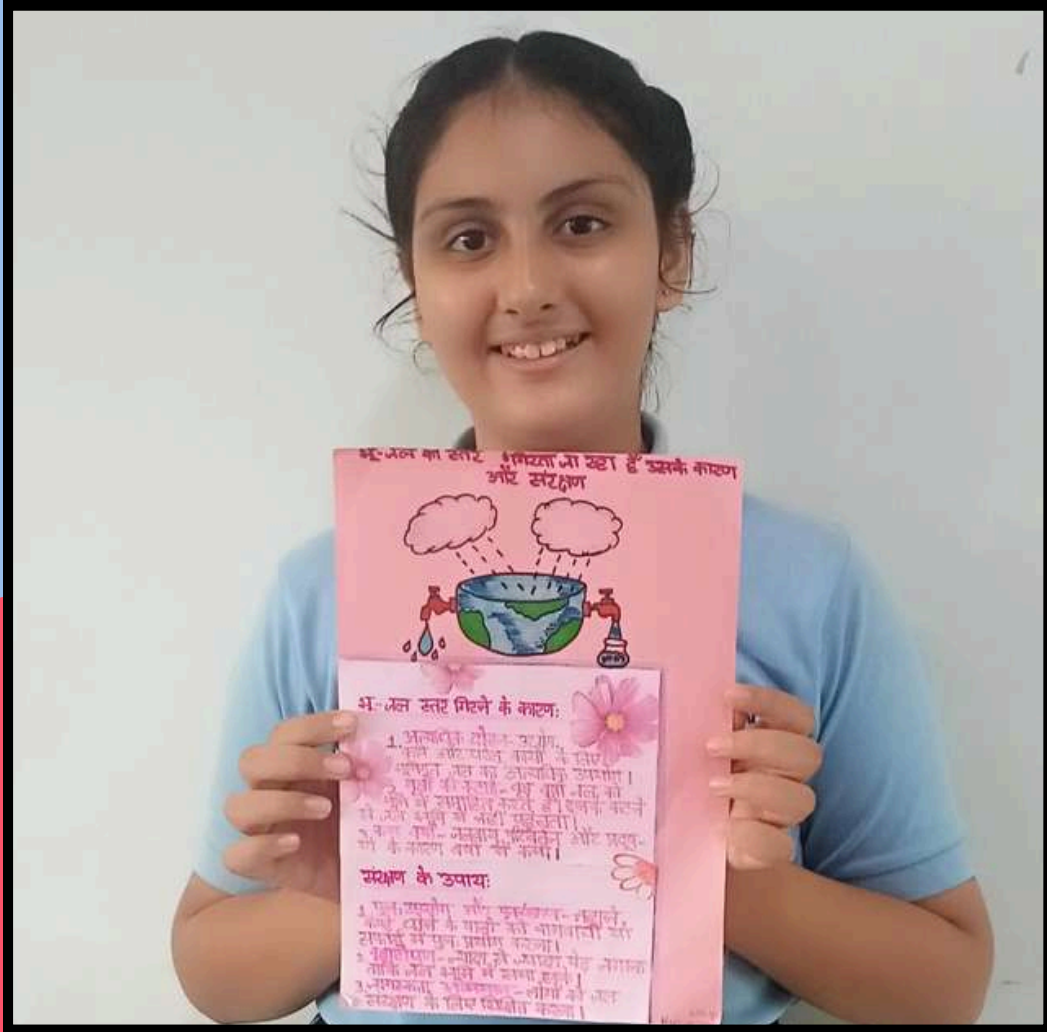 भू-जल का स्तर गिरता जा रहा है उसके कारण
और संरक्षण
भू-जल स्तर गिरने के कारण:
1. अत्यधिक दोहन- उद्योग,
कृषि और घरेलू कार्यों के लिए
भूमिगत जल का अत्यधिक उपयोग।
2. वृक्षों की कटाई- वृक्ष वर्षा जल को
भूमि में समाहित करते हैं। इनके कटने
से जल भूमि में नहीं पहुँचता।
3. कम वर्षा- जलवायु परिवर्तन और प्रदूष-
ण के कारण वर्षा की कमी।
संरक्षण के उपाय:
1. पुनः उपयोग और पुनर्चक्रण- नहाने,
कपड़े धोने के पानी को बागवानी या
सफाई में पुनः प्रयोग करना।
2. वृक्षारोपण- ज्यादा से ज्यादा पेड़ लगाना
ताकि जल भूमि में समा सके।
3. जागरूकता - लोगों को जल
संरक्षण के लिए शिक्षित करना।